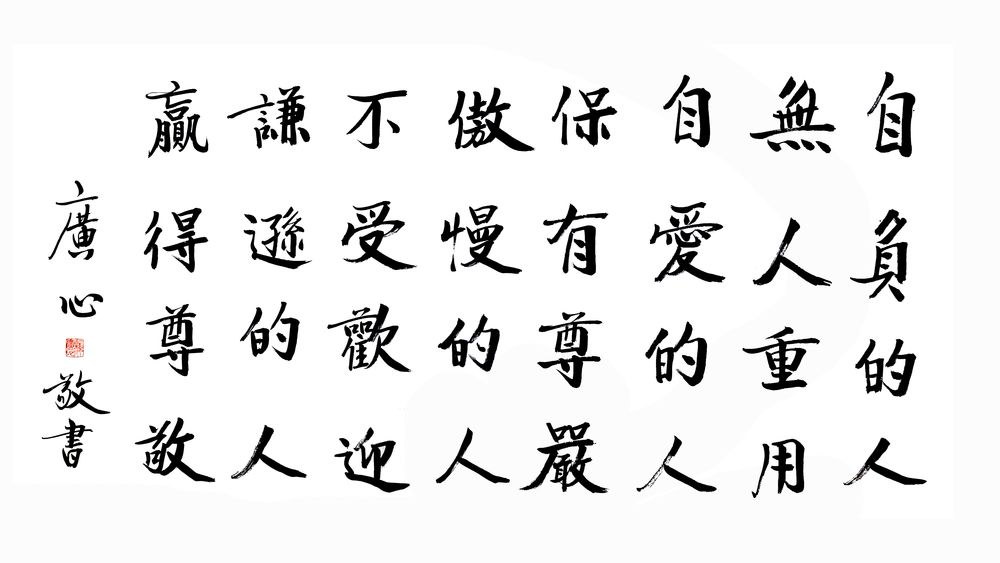 自負的人
無人重用
自愛的人
保有尊嚴
傲慢的人
不受歡迎
謙遜的人
贏得尊敬
廣心敬書